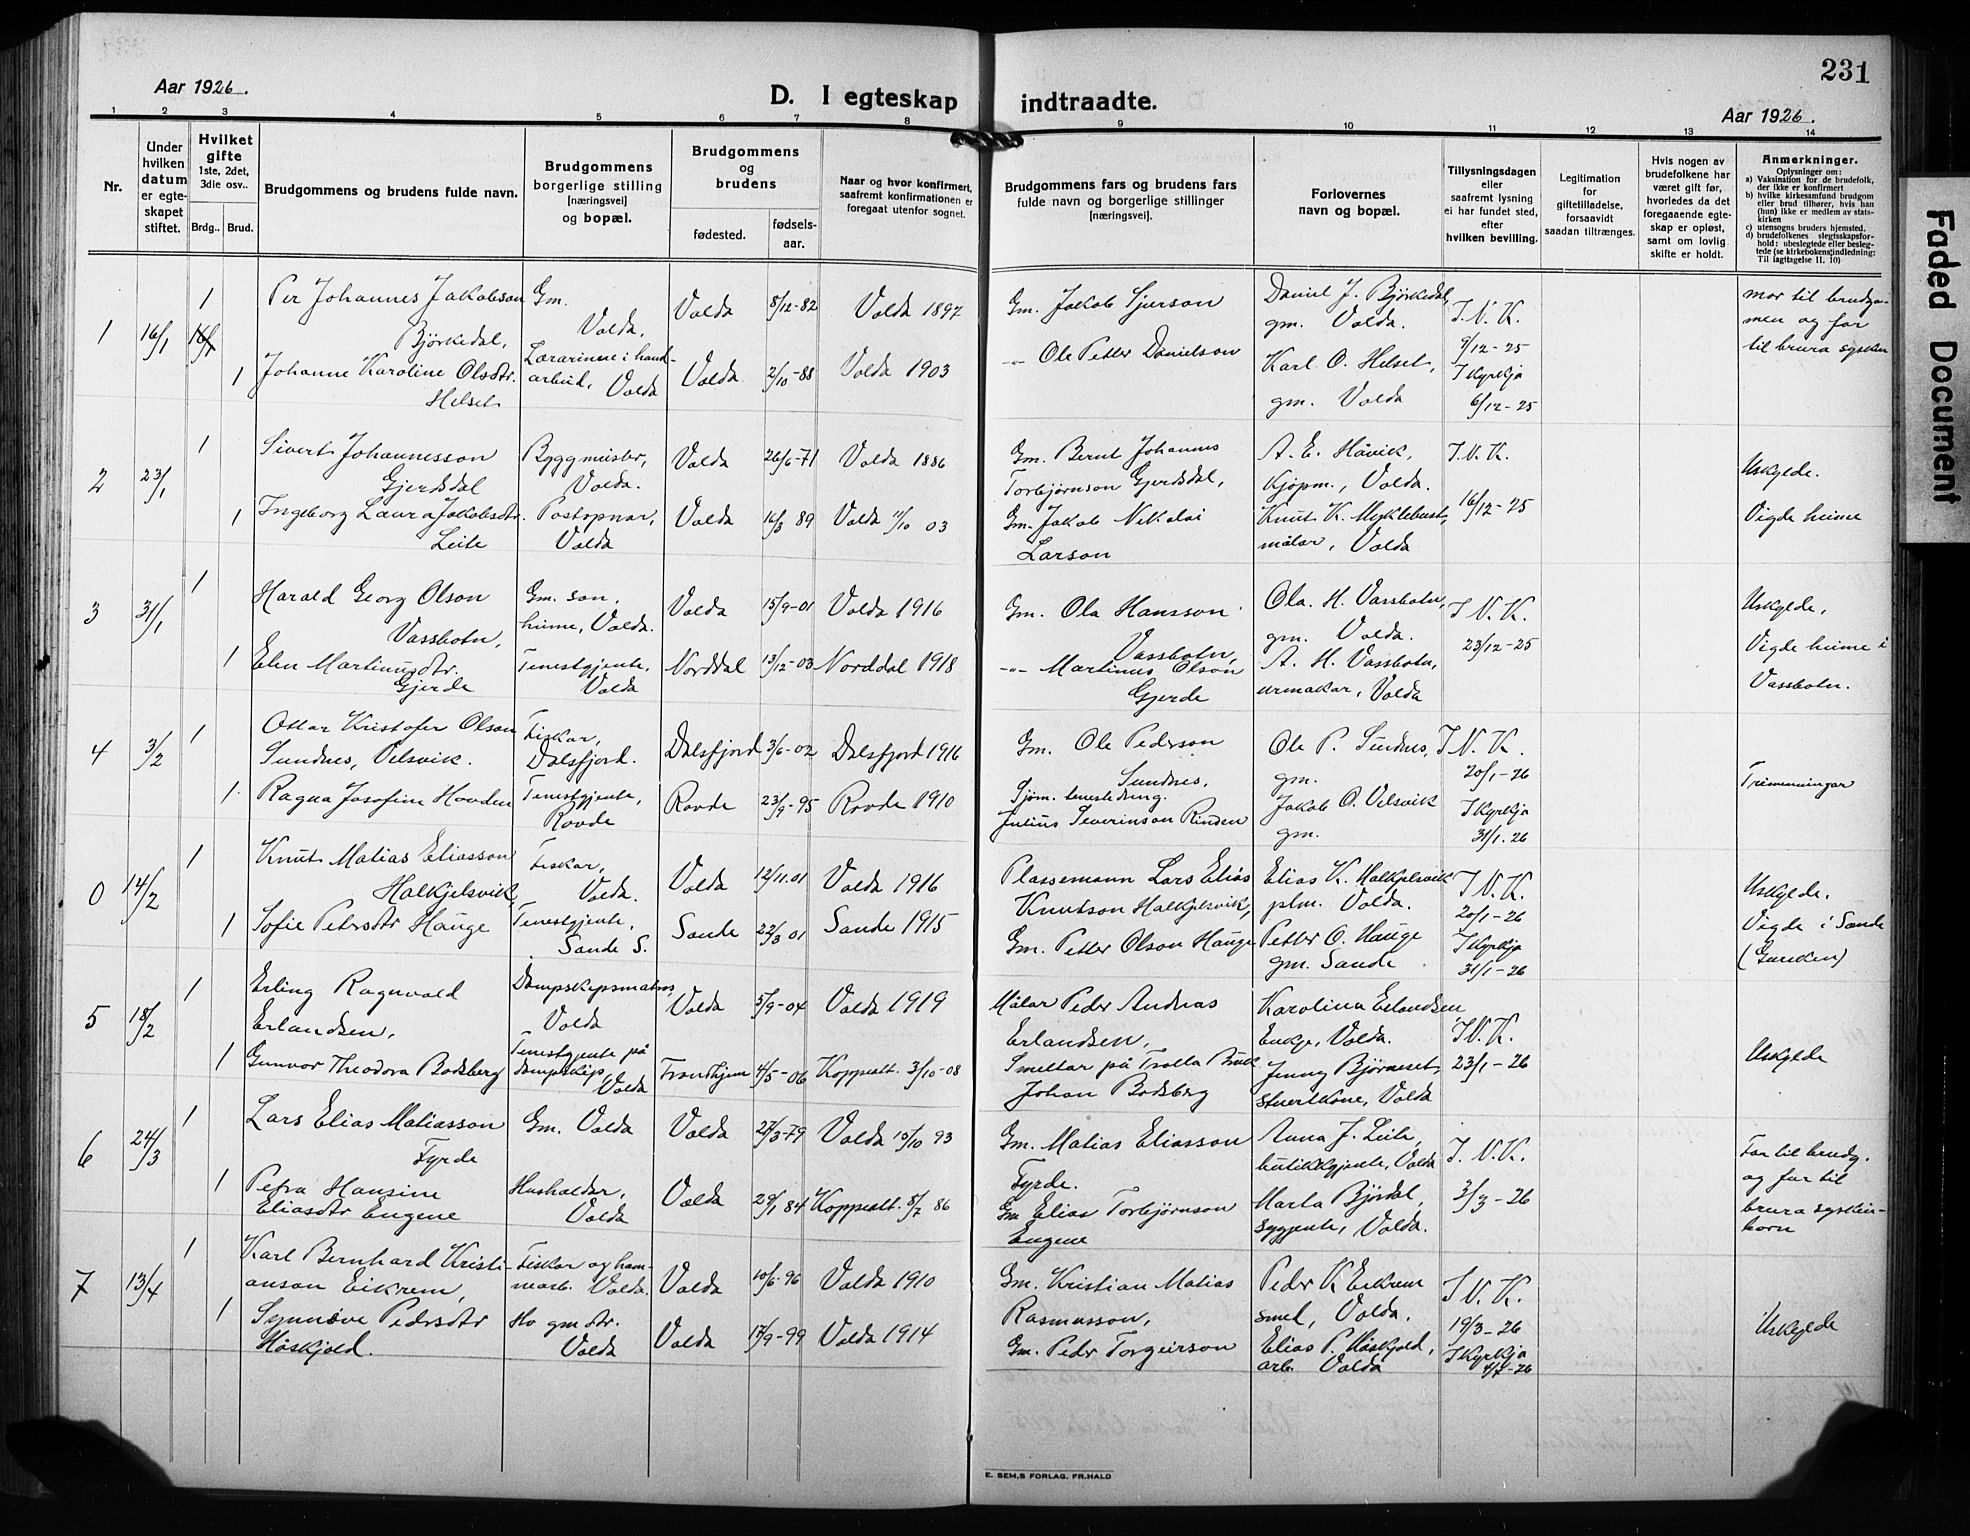 Aar 1926.
D. I egteskap indtraadte.
231
Aar 1926.
1 2 3 4 5 6 7 8 9 10 11 12 13 14
Nr.
Under hvilken datum er egteskapet stiftet.
Hvilket gifte 1ste, 2det, 3die osv..
Brdg.. Brud.
Brudgommens og brudens fulde navn.
Brudgommens borgerlige stilling [næringsvei] og bopæl.
Brudgommens og brudens
fødested.
fødsels-aar.
Naar og hvor konfirmert, saafremt konfirmationen er foregaat utenfor sognet.
Brudgommens fars og brudens fars fulde navn og borgerlige stillinger [næringsvei].
Forlovernes navn og bopæl.
Tillysningsdagen eller saafremt lysning ei har fundet sted, efter hvilken bevilling.
Legitimation for giftetilladelse, forsaavidt saadan tiltrænges.
Hvis nogen av brudefolkene har været gift før, hvorledes da det foregaaende egteskap er opløst, samt om lovlig skifte er holdt.
Anmerkninger.
Oplysninger om:
a) Vaksination for de brudefolk, der ikke er konfirmert
b) hvilke kirkesamfund brudgom eller brud tilhører, hvis han (hun) ikke er medlem av statskirken
c) utensogns bruders hjemsted.
d) brudefolkenes slegtsskapsforhold: ubeslegtede eller beslegtede (se kirkebokens indledning: Til iagttagelse II. 10)
1 16/1 1 Per Johannes Jakobson Bjørkedal, Gm. Volda, Volda 8/12-82 Volda 1897 Gm. Jakob Sjurson Daniel J. Bjørkedal, gm. Volda. I. V. K. 9/12-25 mor til brudgomen og far til brura sysken
1 Johanne Karoline Olsdtr. Helset Lærarinne i handarbeid, Volda Volda 2/10-88 Volda 1903 -"- Ole Petter Danielson Karl O. Helset, gm. Volda I kyrkja 6/12-25
2 23/1 1 Sivert Johannesson Gjerdsdal Byggmeister, Volda. Volda 26/6-71 Volda 1886 Gm. Bernt Johannes Torbjørnson Gjerdsdal, A. E. Håvik, Kjøpm., Volda. I. V. K. Uskylde.
1 Ingeborg Laura Jakobsdtr. Leite Postopnar, Volda Volda 16/3 89 Volda 11/10 03 Gm. Jakob Nikolai Larson Knut K. Myklebust, målar, Volda 16/12-25 Vigde heime
3 31/1 1 Harald Georg Olson Vassbotn, Gm. son, heime, Volda. Volda 15/9-01 Volda 1916 Gm. Ola Hansson Vassbotn, Ola. H. Vassbotn, gm. Volda. I V. K. 23/12-25 Uskylde,
1 Elen Martinusdtr. Gjerde Tenestgjente, Volda Norddal 13/12-03 Norddal 1918 -"- Martinus Olson Gjerde A. H. Vassbotn, urmakar, Volda Vigde heime i Vassbotn.
4 3/2 1 Ottar Kristofer Olson Sundnes, Velsvik. Fiskar, Dalsfjord. Dalsfjord 3/6-02 Dalsfjord 1916 Gm. Ole Pederson Sundnes, Ole P. Sundnes, gm. I V. K. 20/1-26 Tremenningar
1 Ragna Josefine Hovden Tenestgjente, Rovde Rovde 23/9-95 Rovde 1910 Sjøm. Julius Severinson Rinden Jakob O. Velsvik gm. I kyrkja 31/1.26
0 14/2 1 Knut Matias Eliasson Halkjelsvik, Fiskar, Volda. Volda 12/11.01 Volda 1916 Plassemann Lars Elias Knutson Halkjelsvik, Elias K. Halkjelsvik plm. Volda. I V. K. 20/1-26 Uskylde.
1 Sofie Petersdtr Hauge Tenestgjente, Sande S. Sande 22/3 01 Sande 1915 Gm. Petter Olson Hauge Petter O. Hauge gm. Sande I kyrkja 31/1-26 Vigde i Sande (Gursken)
5 18/2 1 Erling Ragnvald Erlandsen, Dampskipsmatros, Volda Volda 5/9-04 Volda 1919 Målar Peder Andreas Erlandsen, Karolina Erlandsen Enkje, Volda. I. V. K. 23/1-26 Uskylde
1 Gunvor Theodora Bodsberg Tenestgjente på dampskip, Volda Trondhjem 4/5-06 Koppesatt. 3/10-08 Smeltar på Trolla Bruk Johan Bodsberg Jenny Bjørneset, stuertkone, Volda
6 24/3 1 Lars Elias Matiasson Fyrde Gm. Volda Volda 27/3-79 Volda 15/10 93 Gm. Matias Eliasson Fyrde. Anna J. Leite, butikkgjente, Volda I. V. K. 3/3-26 Far til brudg. og far til brura syskinborn
1 Petra Hansine Eliasdtr Eugene Husholdar, Volda Volda 29/1 84 Koppesatt. 8/7 86 Gm Elias Torbjørnson Eugene Marta Bjørdal, sygjente, Volda.
7 13/4 1 Karl Bernhard Kristianson Eikrem, Fiskar og hamnearb. Volda. Volda 10/6-96 Volda 1910 Gm. Kristian Matias Rasmusson, Peder K Eikrem smed, Volda. I V. K. 19/3-26 Uskylde
1 Synnøve Pedersdtr Håskjold. Ho gm dtr. Volda Volda 17/9-99 Volda 1914 Gm. Peder Torgeirson Elias P. Håskjold, arb. Volda I kyrkja
E. SEM,S FORLAG, FR.HALD
Faded Document